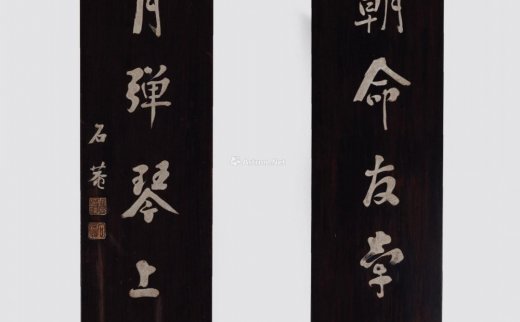 朝命友
月弹琴上
石菴
Artron.Net